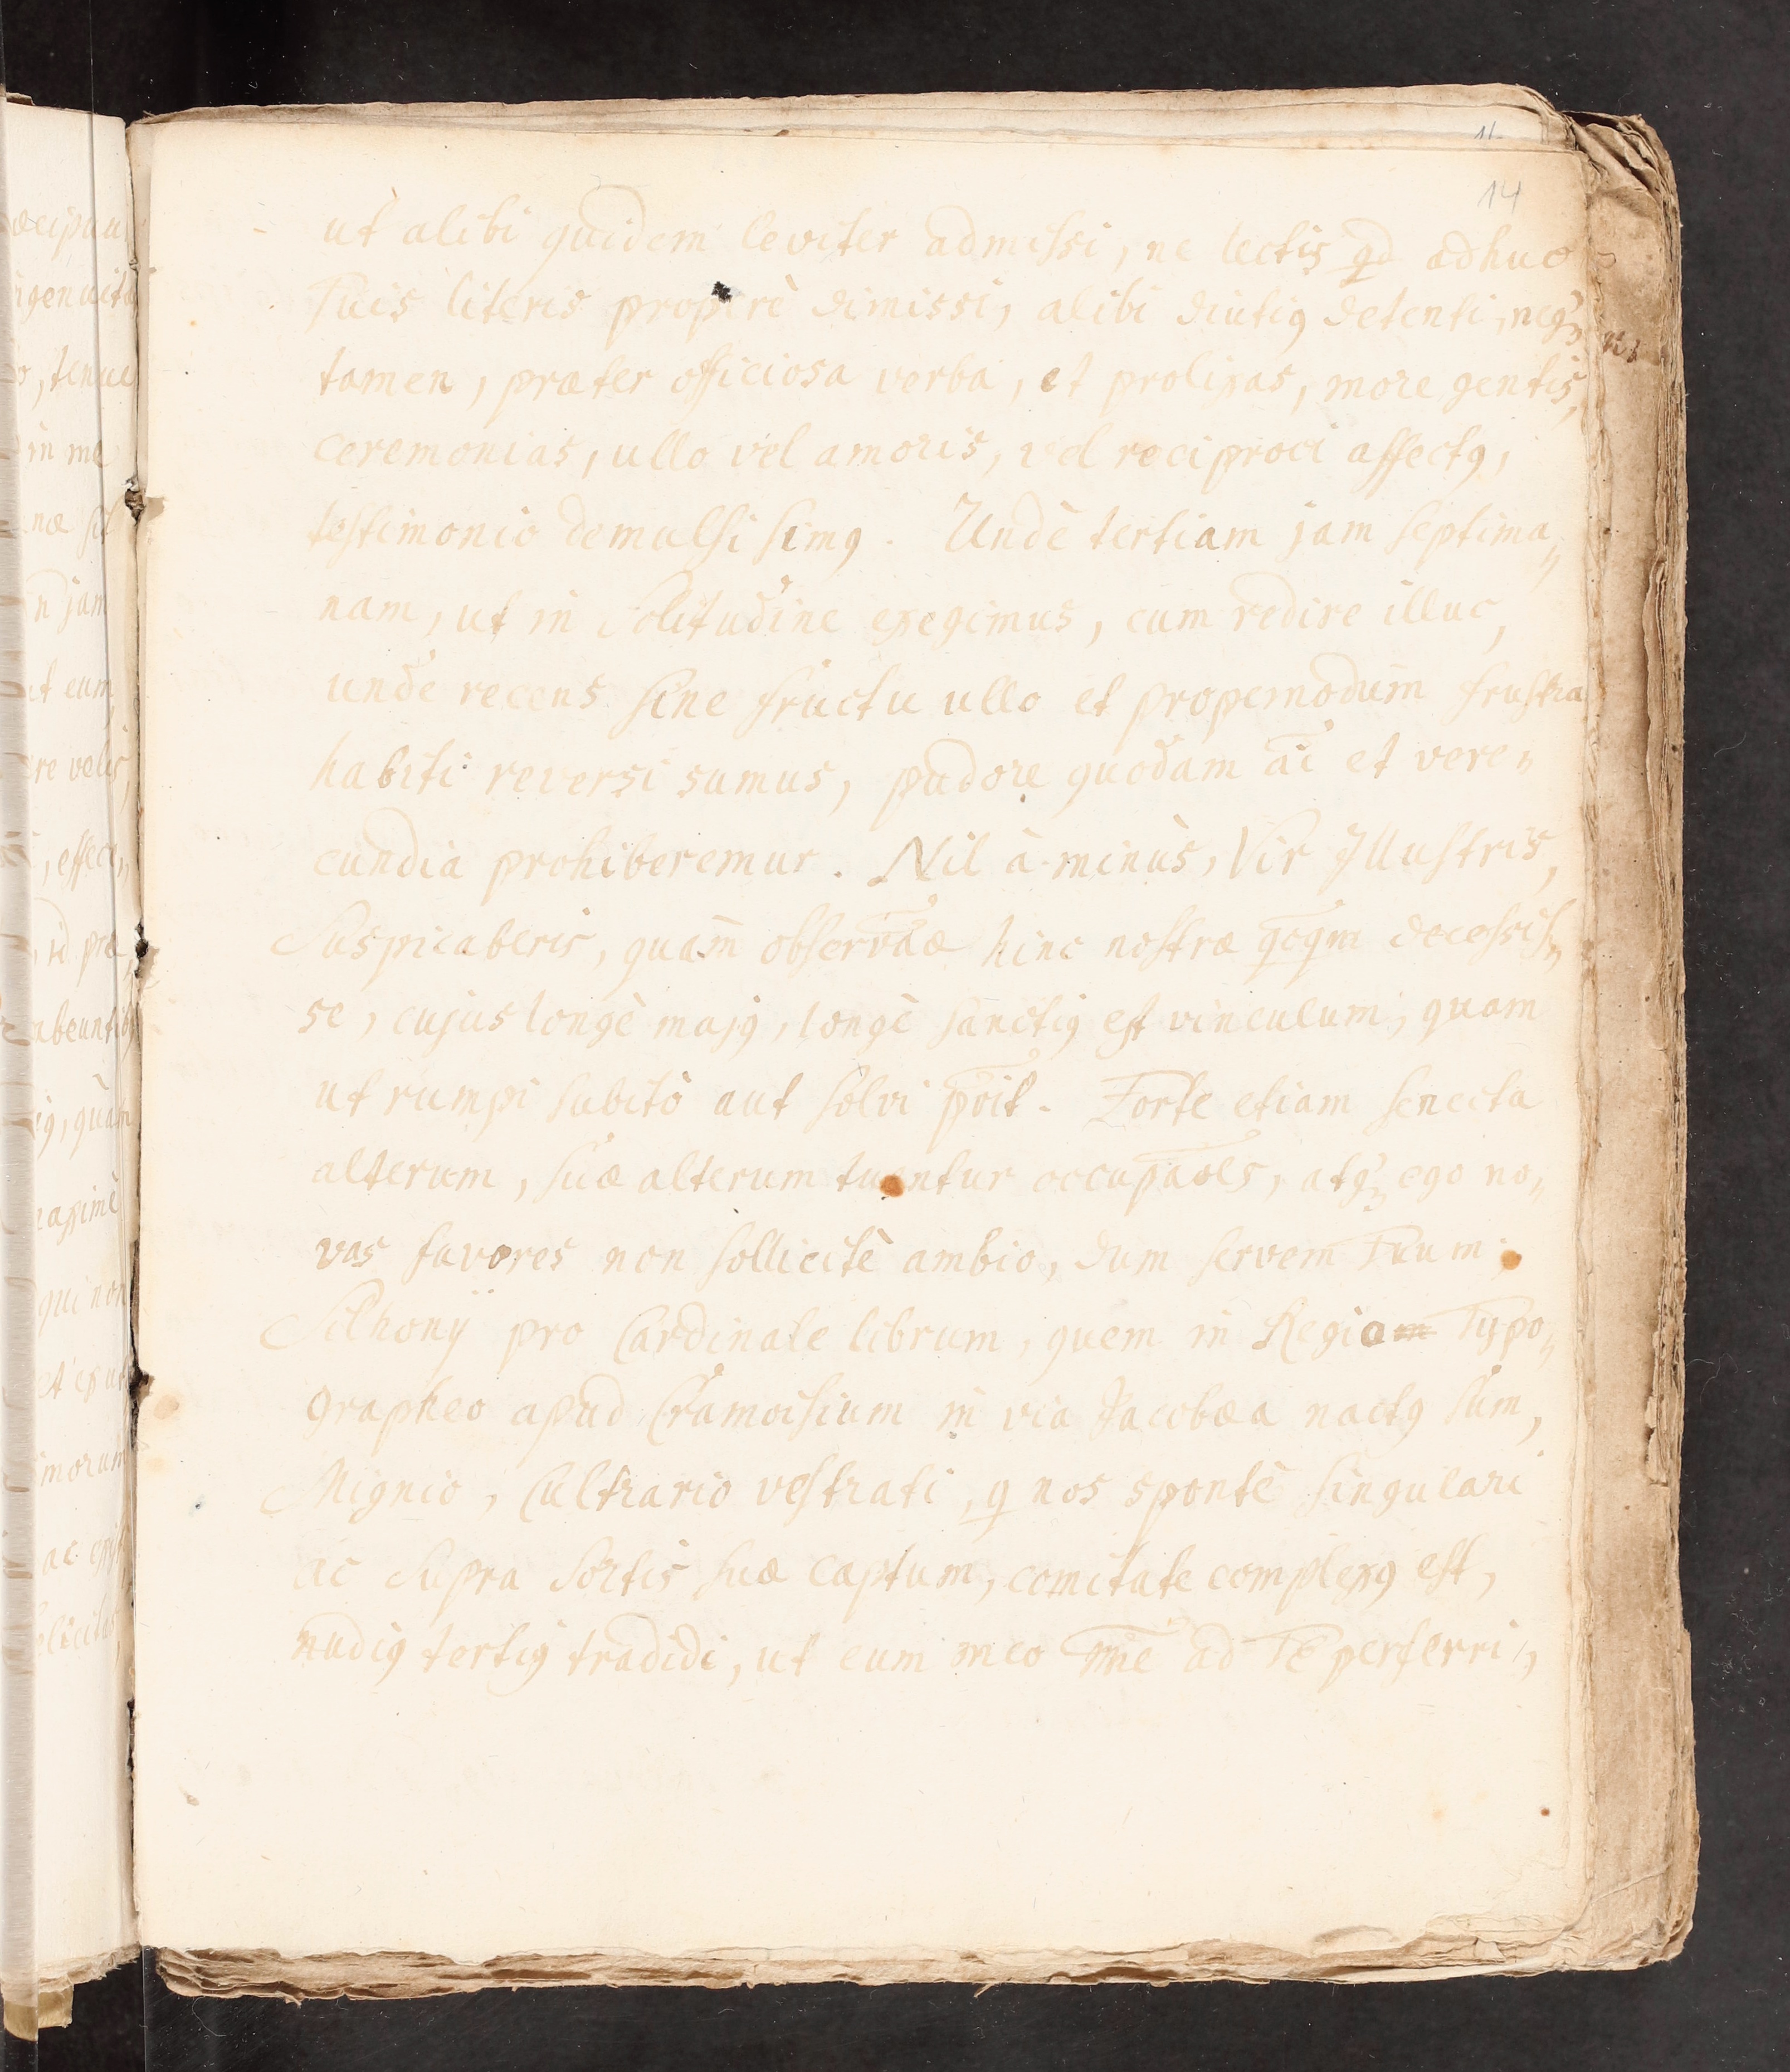 14
ut alibi quidem leviter admissi, ne lectis qd adhuc
Tuis literis properè dimissi, alibi diutiꝰ detenti, neqꝫ
tamen, præter officiosa verba, et prolixas, more gentis,
ceremonias, ullo vel amoris, vel reciproci affectꝰ,
testimonio demulsi simꝰ. Undè tertiam jam septima„
nam, ut in Solitudine exegimus, cum redire illuc,
unde recens sine fructu ullo et propemodum frustra
habiti reversi sumus, pudore quodam ai et vere„
cundia prohiberemur. Nil à minùs, Vir Illustris,
Suspicaberis, quam observãæ hinc nostræ decessis„
se, cujus longè majꝰ, longè sanctiꝰ est vinculum, quam
ut rumpi subitò aut solvi põit. Forte etiam senecta
alterum, suæ alterum tuentur occupãoes, atqꝫ ego no„
vos favores non sollicitè ambio, dum servem Tuum.
Silhonÿ pro Cardinale librum, quem in Regio Typo„
grapheo apud Cramoisium in via Jacobæa nactꝰ sum,
Mignio, Cultrario vestrati, q nos spontè singulari
ac supra sortis suæ captum, comitate complexꝰ est,
nudiꝰ tertiꝰ tradidi, ut eum meo nõie ad Te perferri„